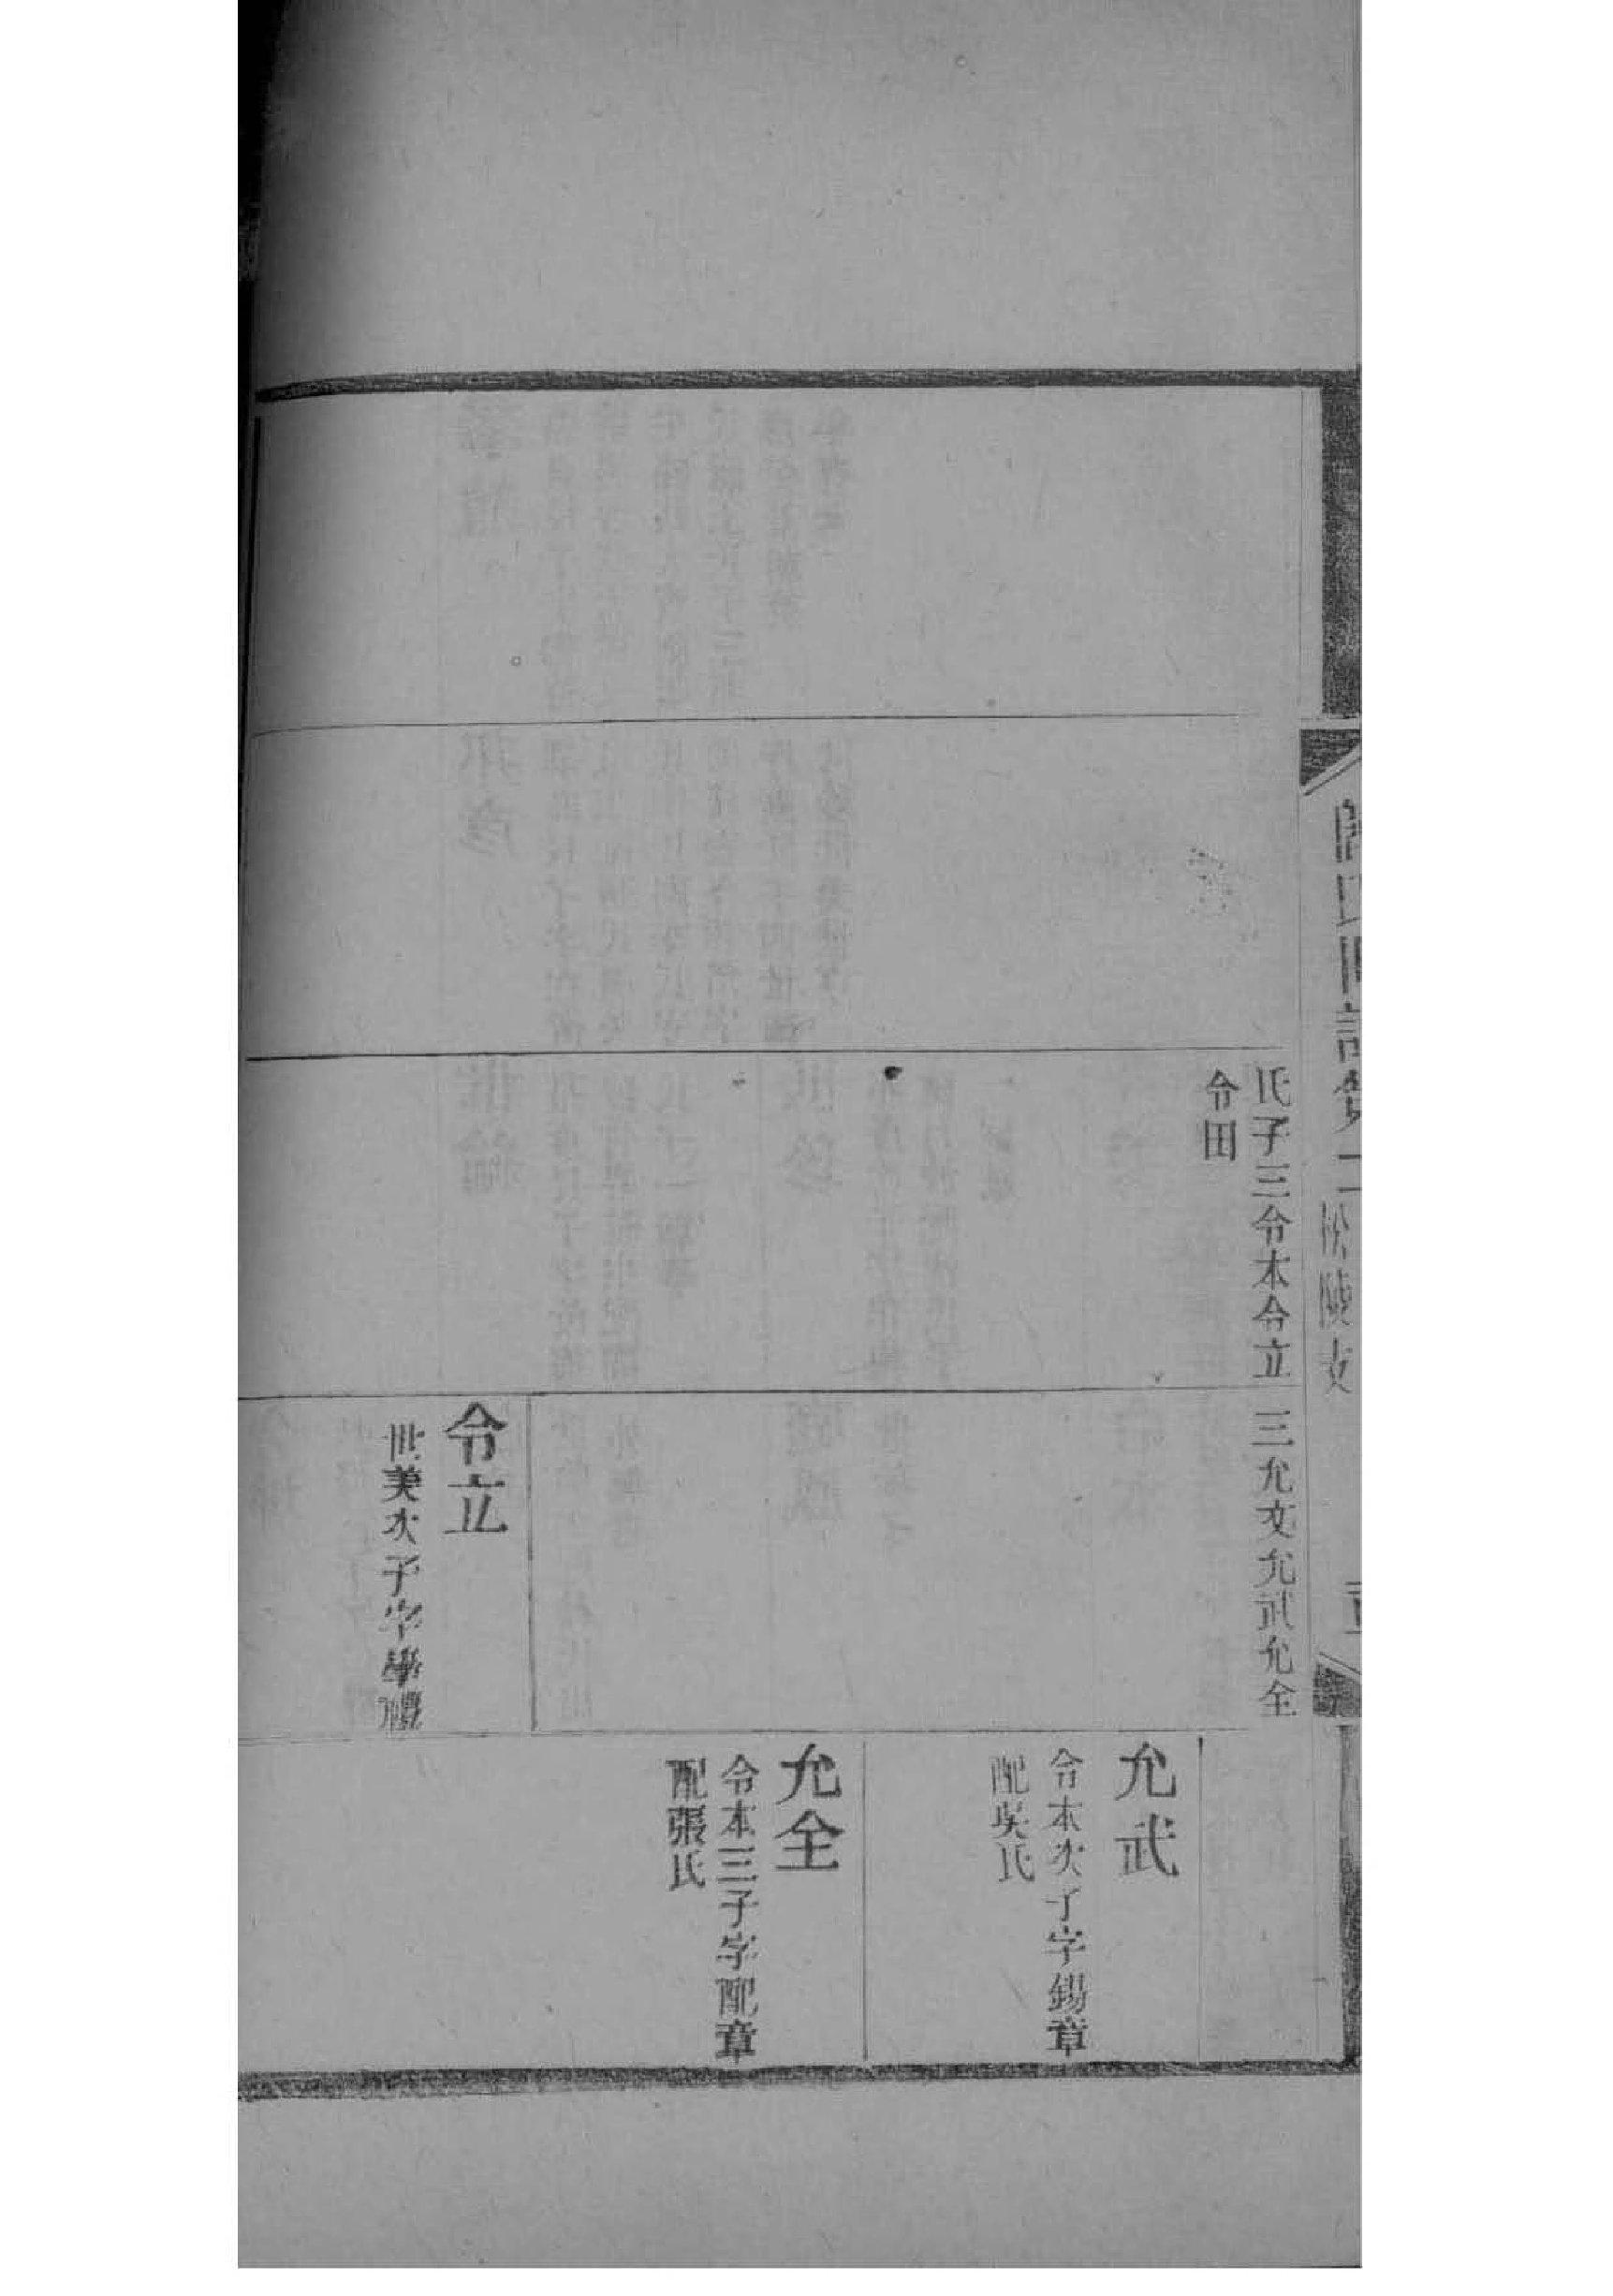 氏子三令本令立
令田
三允文允武允全
令立
世美次子字學禮
允武
令本次子字錫章
配吳氏
允全
令本三子字配章
配張氏